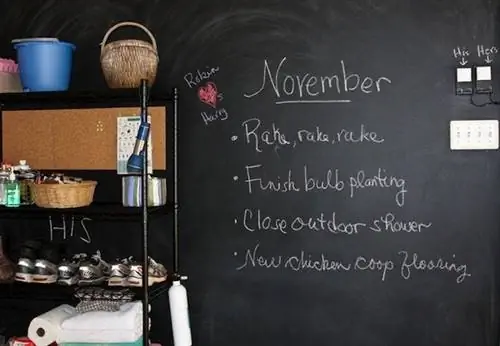 His Hers
Robin
♥'s
Harry
November
• Rake, rake, rake
• Finish bulb planting
• Close outdoor shower
• New chicken coop flooring
HIS